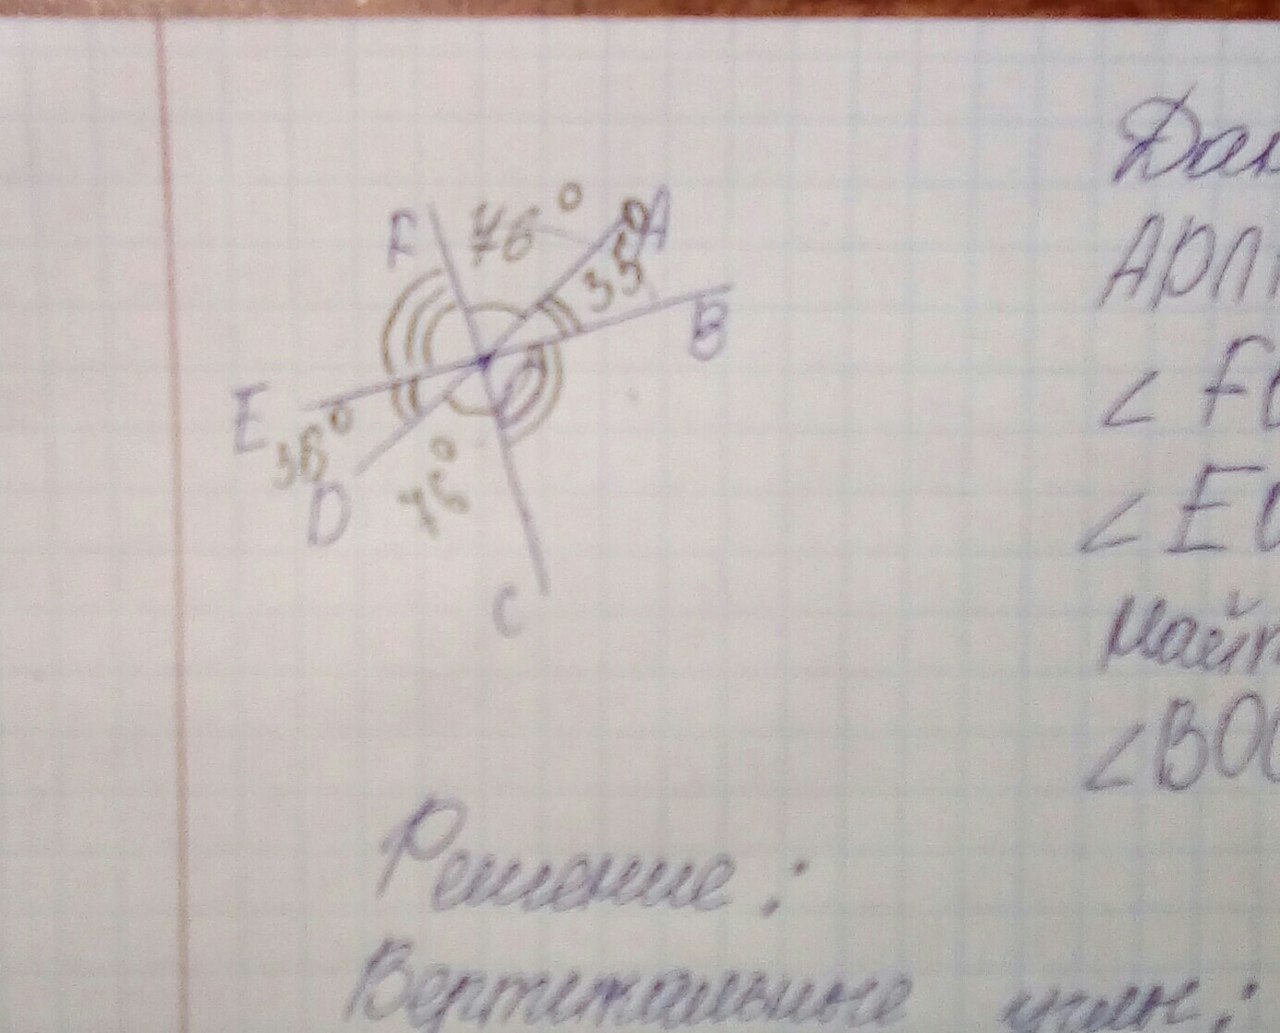 F 76° A
35
B
E
35°
D 75°
C
Дан
АД∩
∠ F
∠ E
Найт
∠BO
Решение:
Вертикальные углы: